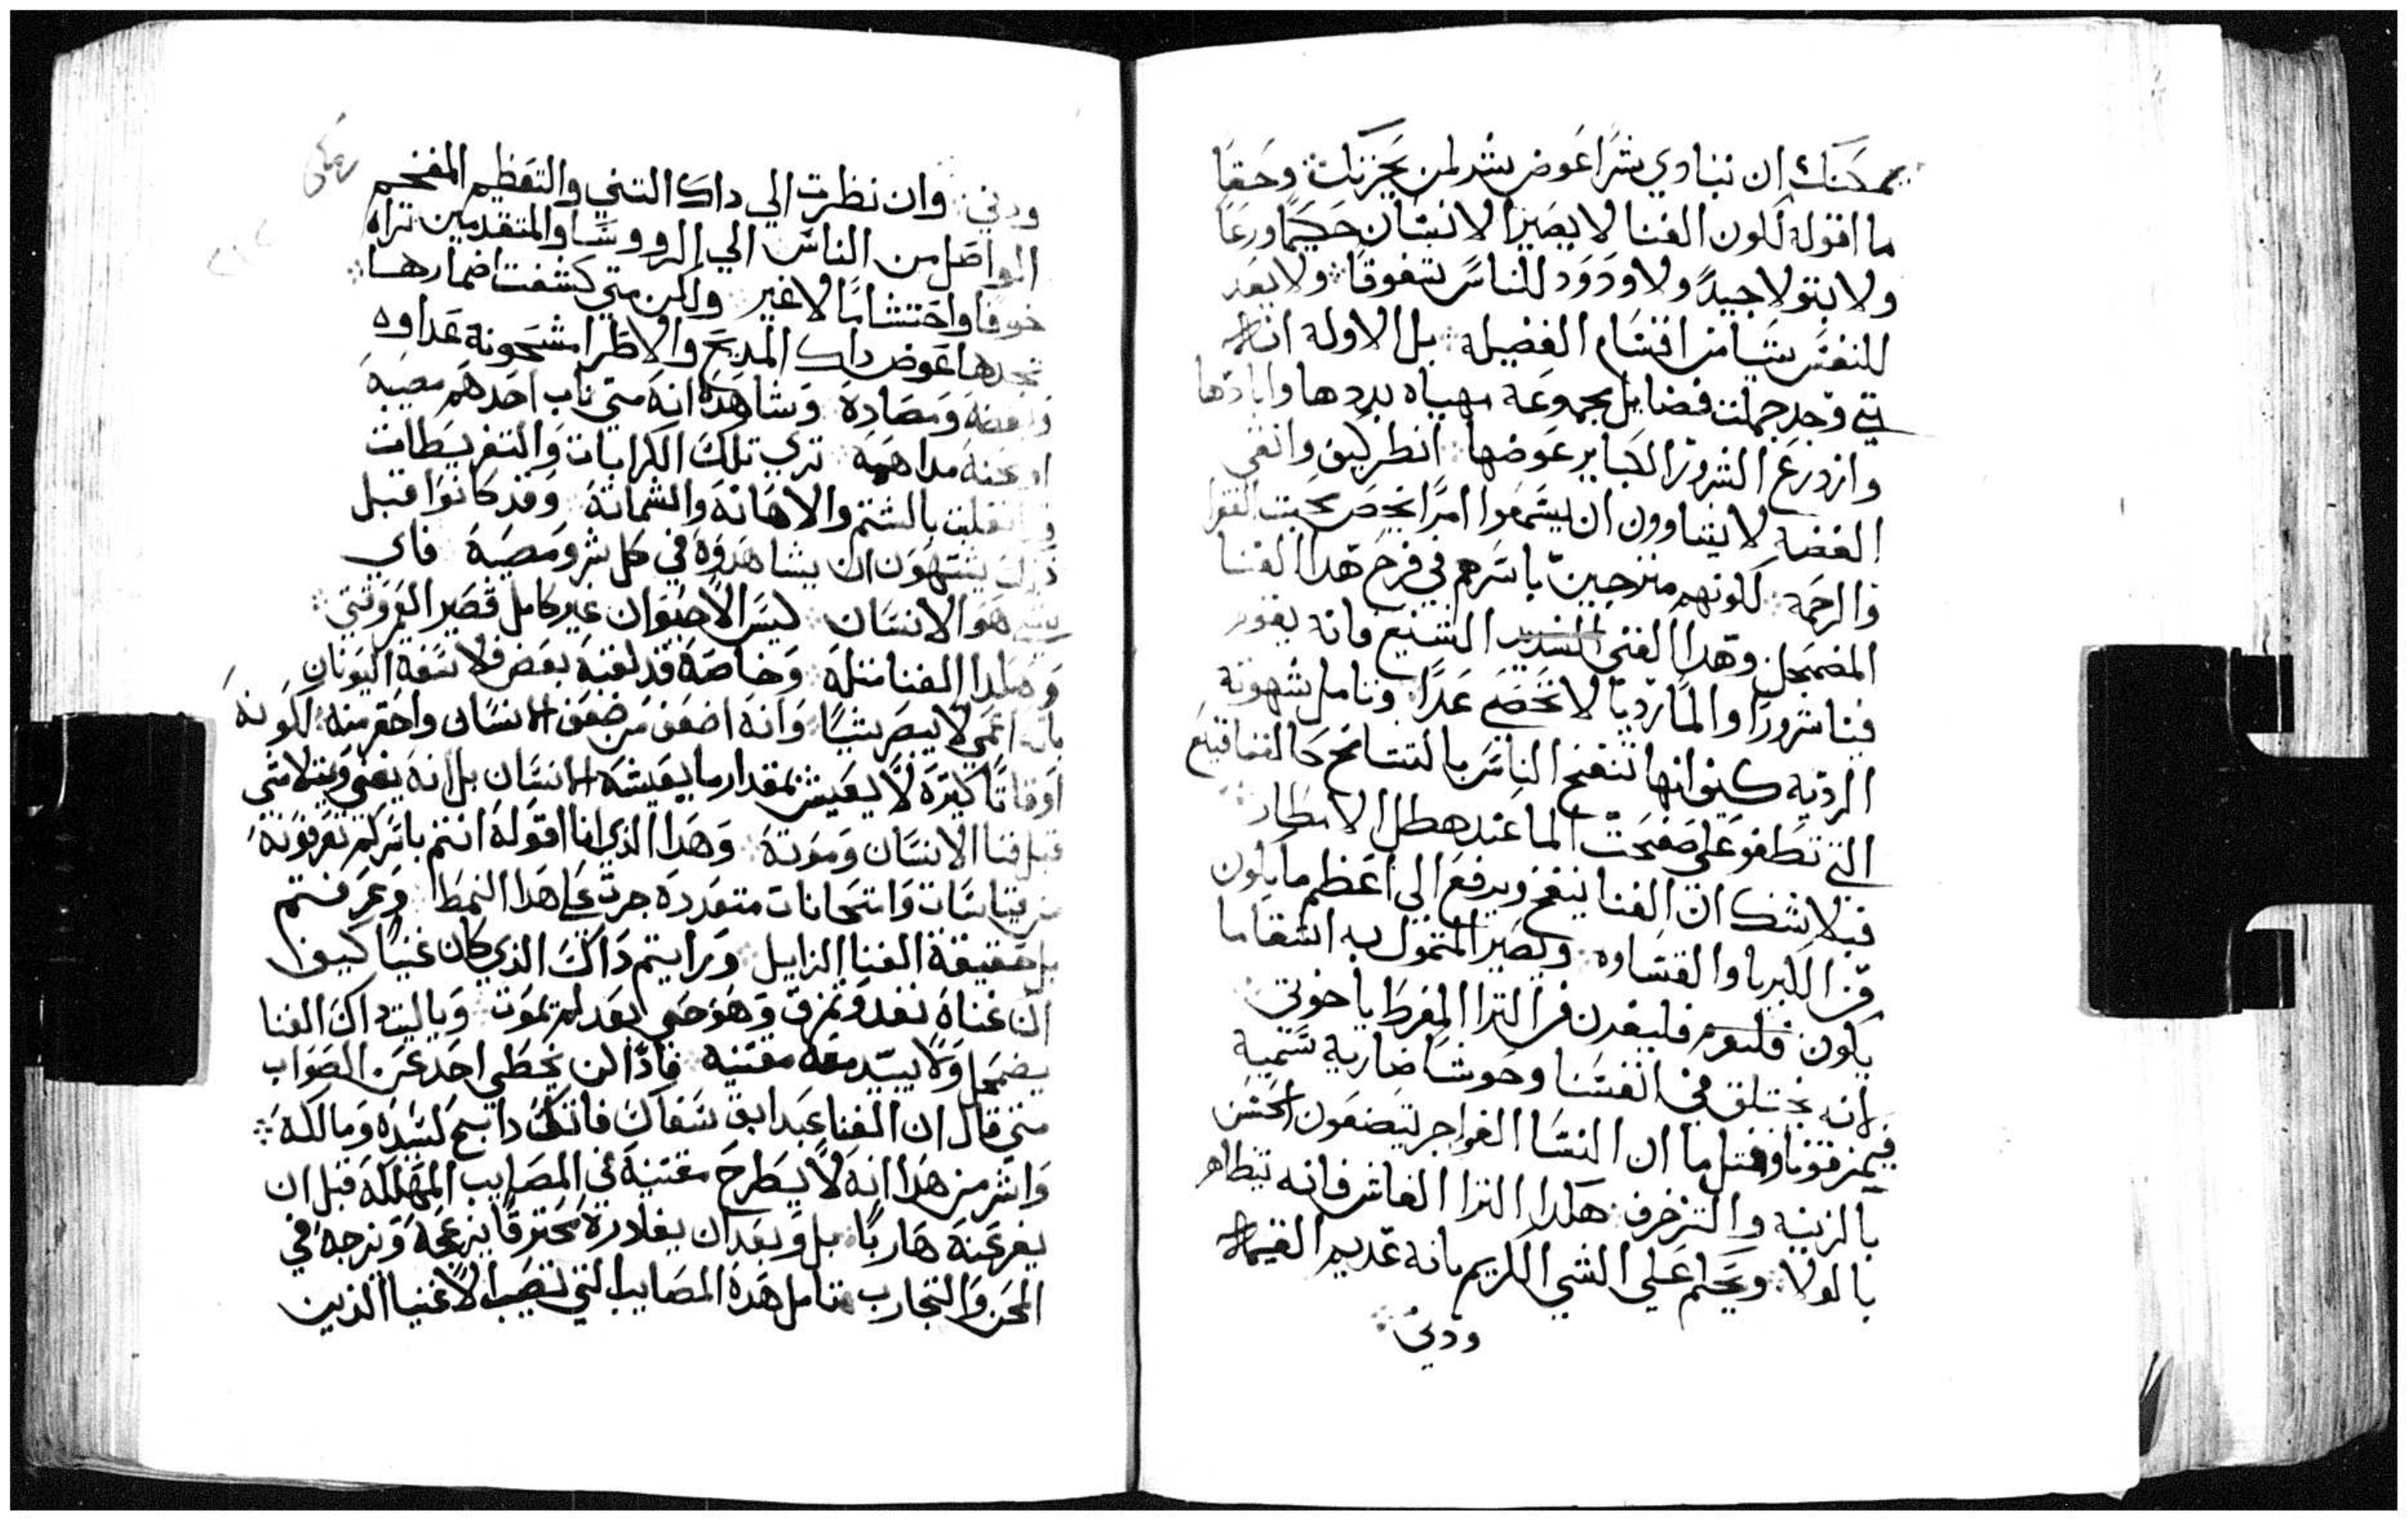 يمكنك ان تباوي شرًا عوض شر لمن يحزنك وحقا
ما اقوله لكون الغنا لا يصير الانسان حكيمًا ورعًا
ولا بتولا جيدً ولا ودود للناس شفوقًا ولا يفد
للنفس شيا من اقسام الفضيلة بل الاولة انه
متي وجد جملت فضايل مجموعة مهياه بددها وابادها
وازدرع الشرور الجباير عوضها انظر كيف وانفي
الفضه لا يتساوون ان يسمعوا امرًا يخص محبت الفقرا
والرحمة لكونهم منزجين باسرهم في فرح هدا الغنا
المضمحل وهدا الغني الشنيع فانه يقوم
فينا شرورًا والمًا رديًا لا تحصي عدًا وتامل شهوته
الرديه كيف انها تنفخ الناس بالتشامخ كالفقاقيع
التي تطفو علي صفحت الما عند هطل الامطار
فبلا شك ان الغنا ينفخ ويرفع الي اعظم ما يكون
من الكبريا والقساوه ويصير المتمول به اشقا ما
يكون فليبعدن من الثرا المفرط ياخوتي
لانه يختلق في انفسنا وحوشا ضارية سمية
فيمزقونا ومتل ما ان النسا الفواجر يتصنعون الحسن
بالزينه والتزخرف هكدا الثرا الغاش فانه يتظاهر
بالولا ويحكم علي الشي الكريم بانه عديم القيمه
ودني
ودني وان نظرت الي داك التني والتعظيم المفخم
الواصل من الناس الي الرووسا والمتقدمين تراه
خوفًا واحتشامًا لا غير ولكن متي كشفت اضمارها
تجدها عوض داك المديح والاطرا مشحونة عداوه
وبغضة ومصادة وشاهده انه متي ناب احدهم مصيبة
او محنة مداهمة تري تلك الكرايات والتفريطات
قد انقلبت بالشتم والاهانة والشماتة وقد كانوا قبل
ذلك يشتهون ان يشاهدوه في كل شر ومصيبة فاي
شي هو الانسان ليس الا حيوان غير كامل قصير العمر وقتي
وهكدا الغنا متله وخاصة قد لقبه بعض فلاسفة اليونان
بانه اعمي لا يبصر شيًا وانه اضعف من ضعف الانسان واحقر منه لكونه
اوقاتًا كتيرة لا يعيش بمقدار ما يعيشه الانسان بل انه يفني ويتلاشي
قبل فنا الانسان وموته وهدا الذي انا اقوله انتم باسركم تعرفونه
من قياسات وامتحانات متعددة جرت علي هدا النمط وعرفتم
بل حقيقة الغنا الزايل ورايتم داك الذي كان غنيًا كيف
ان غناه نفد وتمزق وهو حي بعد لم يموت وياليت داك الغنا
يضمحل ولا يبيد معه مقتنيه فاذًا لن يخطي احد عن الصواب
متي قال ان الغنا عبد ابق سفاك فاتك دابح لسيده ومالكه
واشر من هدا انه لا يطرح مقتنيه في المصايب المهلكة قبل ان
يفر عنه هاربًا بل وبعد ان يغادره محترقًا يزعجه ويزجه في
المحن والتجارب تامل هده المصايب التي تصيب الاغنيا الذين